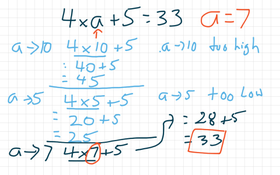 4×a+5=33 a=7
a→10 4×10+5 a→10 too high
=40+5
=45
a→5 4×5+5 a→5 too low
=20+5
=25
a→7 4×7+5
=28+5
=33